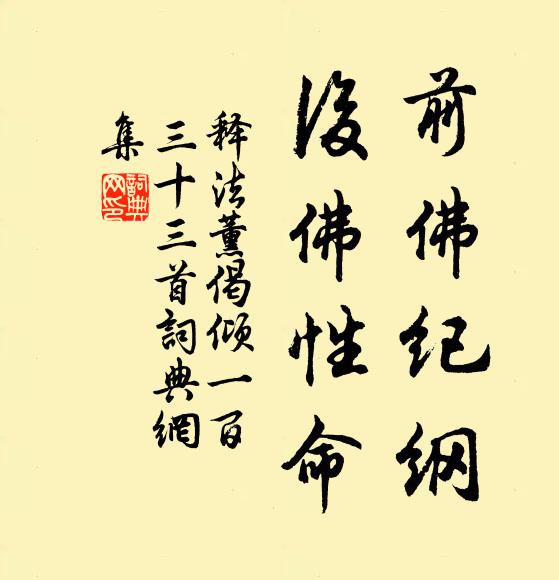 前佛纪纲
後佛性命
释法薰偈倾一百
三十三首詞典網
集
詞典網印